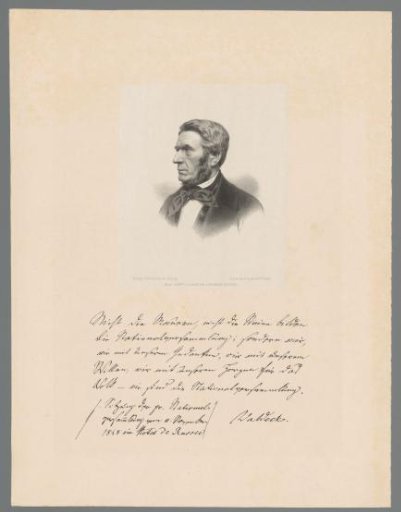 Nicht die Mauern, nicht die Steine bilden
die Nationalversammlung; sondern wir,
wir mit unseren Gedanken, wir mit unserem
Willen, wir mit unserem Herzen für das
Volk – wir sind die Nationalversammlung.
Sitzung der pr. National-
versammlung vom November
1848 im Hotel de Russie
Waldeck.